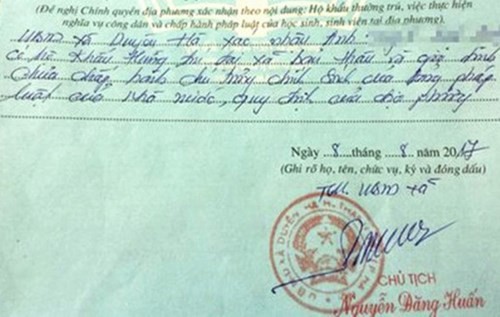 (Đề nghị Chính quyền địa phương xác nhận theo nội dung: Hộ khẩu thường trú, việc thực hiện
nghĩa vụ công dân và chấp hành pháp luật của học sinh, sinh viên tại địa phương)
UBND xã Duyên Hà xác nhận anh:
có hộ khẩu thường trú tại xã bản thân và gia đình
chưa chấp hành chủ trương chính sách của Đảng pháp
luật của nhà nước, quy định của địa phương
Ngày 8 tháng 8 năm 2017
(Ghi rõ họ, tên, chức vụ, ký và đóng dấu)
TM. UBND xã
CHỦ TỊCH
Nguyễn Đăng Huấn